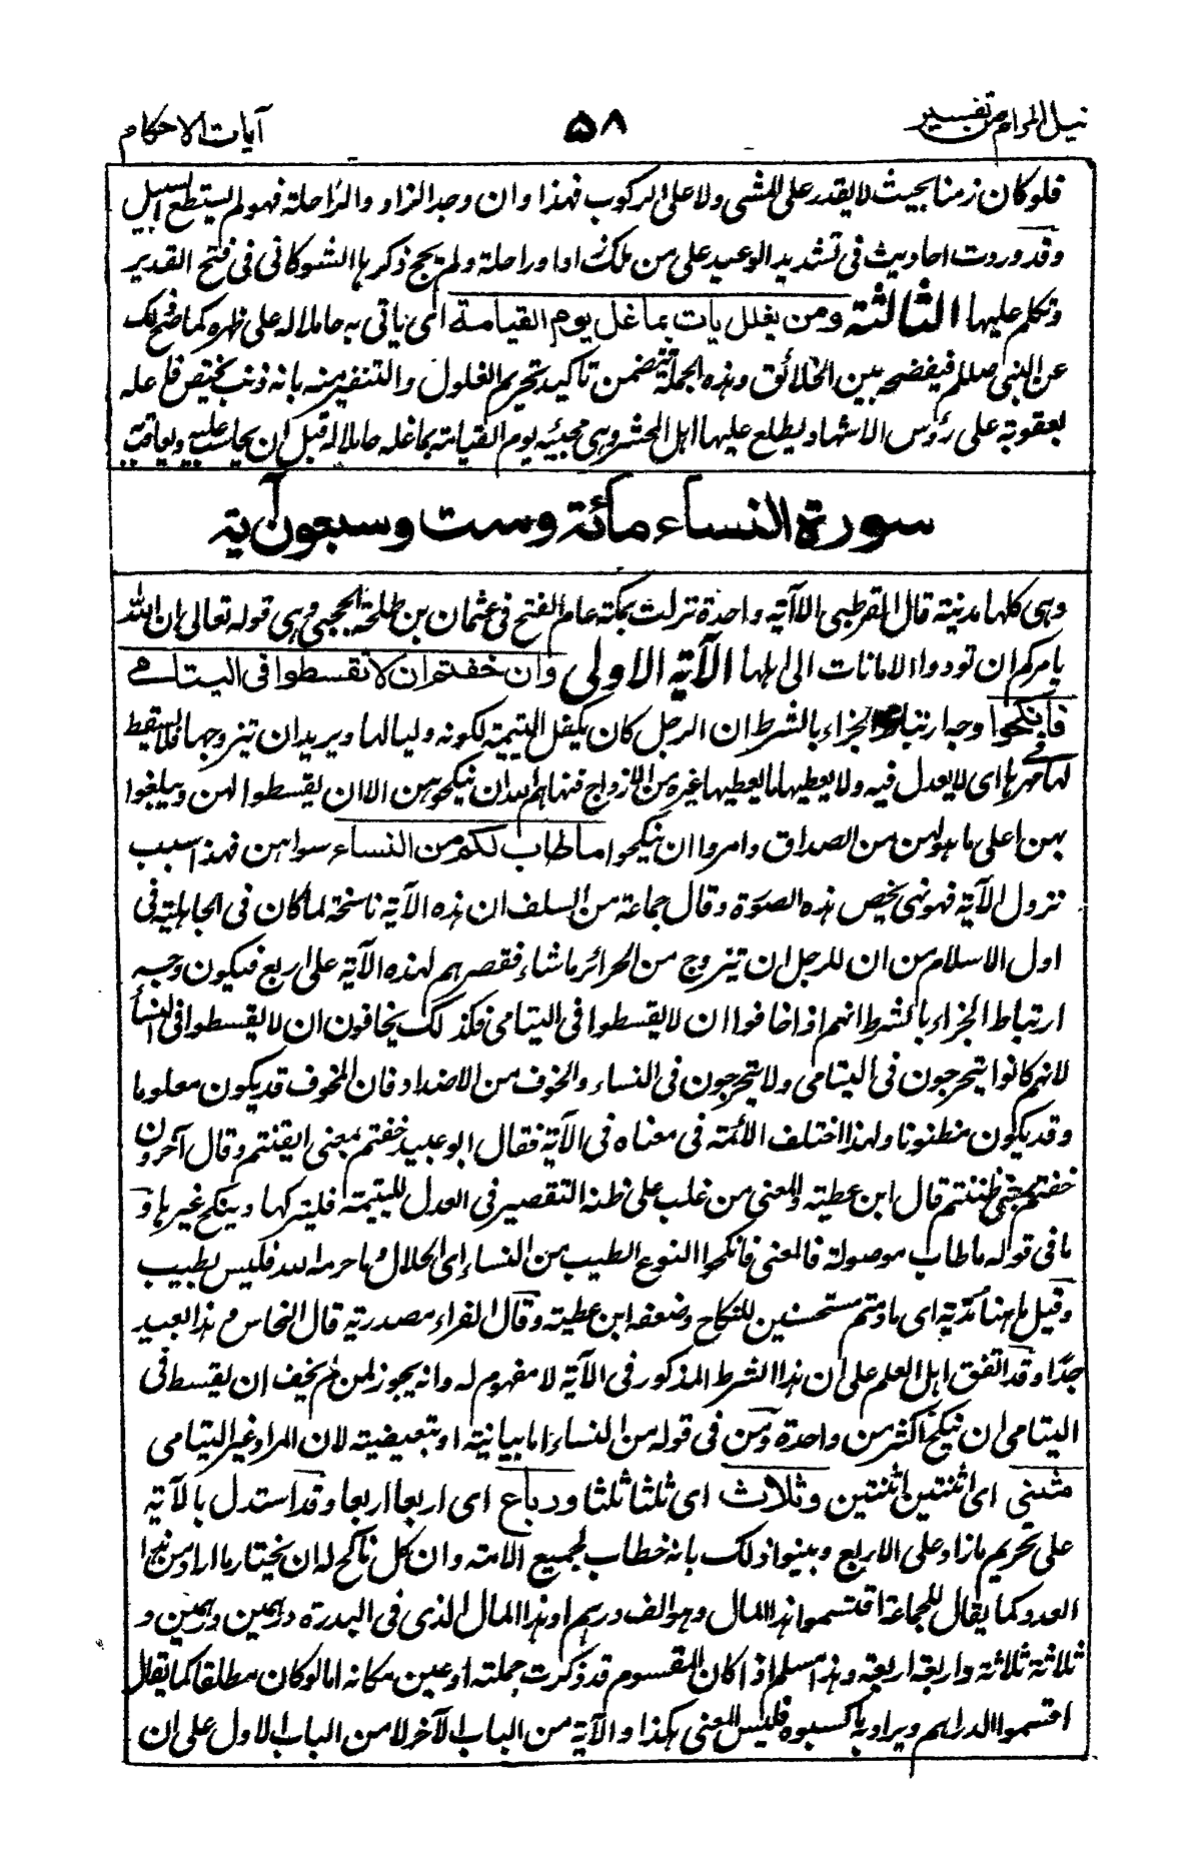 نيل المرام من تفسير ٥٨ آيات الاحكام
فلو كان زمنا بحيث لا يقدر على المشى ولا على الركوب فهذا وان وجد الزاد والراحلة فهو لم يستطع السبيل
وقد وردت احاديث فى تشديد الوعيد على من ملك زادا وراحلة ولم يحج ذكرها الشوكانى فى فتح القدير
وتكلم عليها الثالثة ومن يغلل يات بما غل يوم القيامة اى ياتى به حاملا له على ظهره كما صح ذلك
عن النبى صللم فيفضحه بين الخلائق وهذه الجملة تتضمن تاكيد تحريم الغلول والتنفير منه بانه ذنب يختص فاعله
بعقوبة على رؤس الاشهاد يطلع عليها اهل المحشر وهى مجيئه يوم القيامة بما غله حاملا له قبل ان يحاسب عليه ويعاقب
سورة النساء مائة وست وسبعون آية
وهى كلها مدنية قال القرطبى الا آية واحدة نزلت بمكة عام الفتح فى عثمان بن طلحة الحجبى وهى قوله تعالى ان الله
يامركم ان تودوا الامانات الى اهلها الآية الاولى وان خفتم ان لا تقسطوا فى اليتامے
فانكحوا وجه ارتباط الجزاء بالشرط ان الرجل كان يكفل اليتيمة لكونه وليا لها ويريد ان تيزوجها فلا يقسط
لها فى مهرها اى لا يعدل فيه ولا يعطيها ما يعطيها غيره من الازواج فنهاهم الله ان ينكحوهن الا ان يقسطوا لهن ويبلغوا
بهن اعلى ما هو لهن من الصداق وامروا ان ينكحوا ما طاب لكم من النساء سواهن فهذا سبب
نزول الآية فهو نهى يخص هذه الصورة وقال جماعة من السلف ان هذه الآية ناسخة لما كان فى الجاهلية وفى
اول الاسلام من ان للرجل ان تيزوج من الحرائر ما شاء فقصرهم لهذه الآية على اربع فيكون وجه
ارتباط الجزاء بالشرط انهم اذا خافوا ان لا يقسطوا فى اليتامى فكذلك يخافون ان لا يقسطوا فى النساء
لانهم كانوا يتحرجون فى اليتامى ولا يتحرجون فى النساء والخوف من الاضداد فان المخوف قد يكون معلوما
وقد يكون مظنونا ولهذا اختلف الائمة فى معناه فى الآية فقال ابو عبيد خفتم بمعنى ايقنتم وقال آخرون
خفتم بمعنى ظننتم قال ابن عطية والمعنى من غلب على ظنه التقصير فى العدل لليتيمة فليتركها وينكح غيرها و
ما فى قوله ما طاب موصولة فالمعنى فانكحوا النوع الطيب من النساء اى الحلال وما حرمه الله فليس بطيب
وقيل ما هنا مدية اى ما دمتم مستحسنين للنكاح وضعفه ابن عطية وقال الفراء مصدرية قال النحاس وهذا بعيد
جدا وقد اتفق اهل العلم على ان هذا الشرط المذكور فى الآية لا مفهوم له وانه يجوز لمن لم يخف ان يقسط فى
اليتامى ان ينكح اكثر من واحدة ومن فى قوله من النساء اما بيانية او تبعيضية لان المراد غير اليتامى
مثنى اى اثنتين اثنتين وثلاث اى ثلثا ثلثا ورباع اى اربعا اربعا وقد استدل بالآية
على تحريم ما زاد على الاربع وبينوا ذلك بانه خطاب لجميع الامة وان كل ناكح له ان يختار ما اراد من هذا
العدد كما يقال للجماعة اقتسموا هذا المال وهو الف درهم او هذا المال الذى فى البدرة درهمين درهمين و
ثلاثة ثلاثة واربعة اربعة وهذا مسلم اذا كان المقسوم قد ذكرت جملته او عين مكانه اما لو كان مطلقا كما يقال
اقتسموا الدراهم ويراد به ما كسبوه فليس المعنى هكذا والآية من الباب الآخر لا من الباب الاول على ان